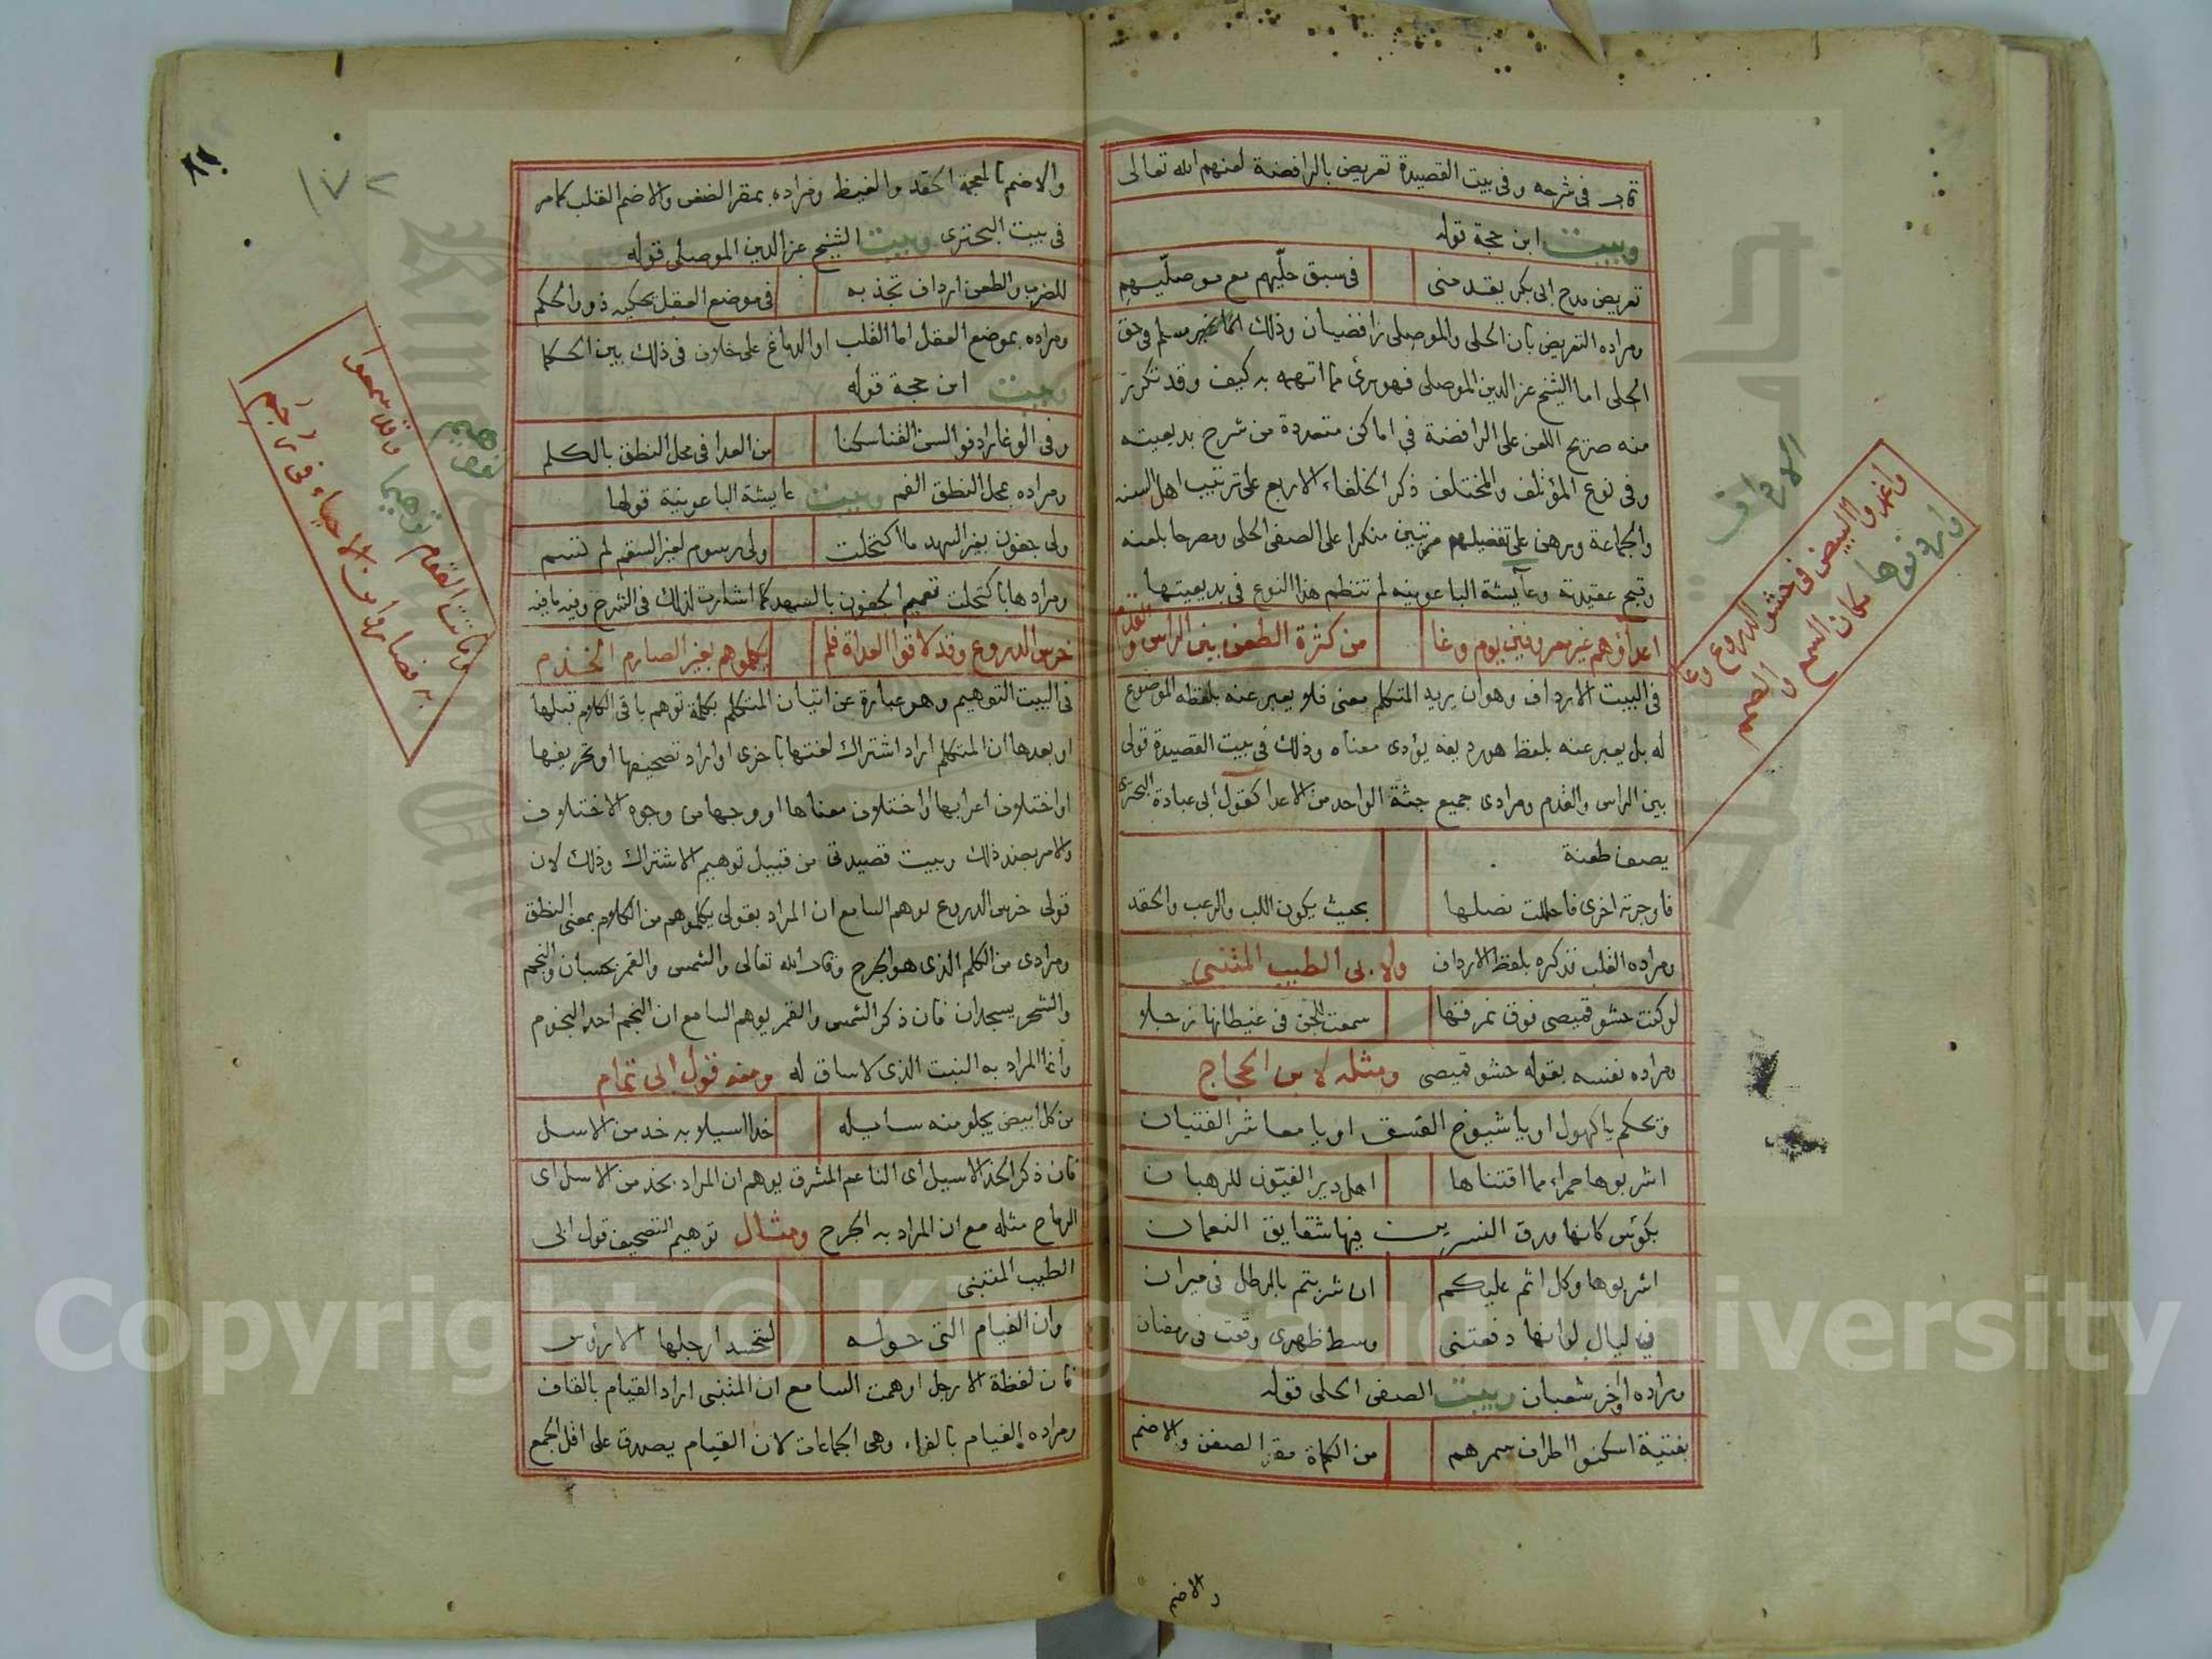 قال في شرحه وفي بيت القصيدة تعريض بالرافضة لعنهم الله تعالى
وبيت ابن حجة قوله
تعريض مدح ابي بكر يقدمني في سبق حلّيهم مع موصليّهم
ومراده التعريض بان الحلي والموصلي رافضيان وذلك انما غير مسلم في حق
الحلي اما الشيخ عز الدين الموصلي فهو برئ مما اتهمه به كيف وقد تكرر
منه صريح اللعن على الرافضة في اماكن متعددة من شرح بديعيته
وفي نوع المؤتلف والمختلف ذكر الخلفاء الاربع على ترتيب اهل السنه
والجماعة وبرهن على تفضيلهم مرتبين منكرا على الصفي الحلي ومصرحا بلعنه
وقبح عقيدته وعايشة الباعونيه لم تنظم هذا النوع في بديعيتها
اعداؤهم غير معروفين يوم وغا من كثرة الطعن بين الراس والقدم
في البيت الارداف وهو ان يريد المتكلم معنى فلا يعبر عنه بلفظه الموضوع
له بل يعبر عنه بلفظ هو رديفه يؤدى معناه وذلك في بيت القصيدة قولي
بين الراس والقدم ومرادى جميع جثة الواحد من الاعدا كقول ابي عبادة البحترى
يصف طعنة
فاوجرته اخرى فاحللت نصلها بحيث يكون اللب والرعب والحقد
ومراده القلب فذكره بلفظ الارداف ولابي الطيب المتنبي
لو كنت حشو قميصي فوق نمرقها سمعت للجن في غيطانها زجلا
مراده نفسه بقوله حشو قميصي ومثله لابن الحجاج
ويحكم يا كهول او يا شيوخ الفسق او يا معاشر الفتيان
اشربوها حمراء مما اقتناها اهل دير القيّون للرهبان
بكؤس كانها ورق النسرين فيها شقايق النعمان
اشربوها وكل اثم عليكم ان شربتم بالرطل في ميزان
في ليال لو انها دفعتني وسط ظهرى وقعت في رمضان
ومراده اواخر شعبان وبيت الصفي الحلي قوله
بفتية اسكنوا اطراف سمرهم من الكماة مقر الضغن والاضم
والاضم
الارداف
واغمدوا البيض في حشو الدروع وغا
واردفوها مكان السمع والصمم
١٧٢
والاضم بالمعجمة الحقد والغيظ ومراده بمقر الضغن والاضم القلب كما مر
في بيت البحترى وبيت الشيخ عز الدين الموصلي قوله
للضرب والطعن ارداف تجذ به في موضع العقل تحكيه ذووا الحكم
ومراده بموضع العقل اما القلب او الدماغ على خلاف في ذلك بين الحكما
وبيت ابن حجة قوله
وفي الوغا رادفو السن القنا سكنا من العدا في محل النطق بالكلم
ومراده بمحل النطق الفم وبيت عايشة الباعونية قولها
ولي جفون بغير السهد ما اكتحلت ولي رسوم لغير السقم لم تسم
ومرادها باكتحلت تعميم الجفون بالسهد كما اشارت لذلك في الشرح وفيه ما فيه
خرس الدروع وقد لاقوا العداة فلم يكلموهم بغير الصارم الخذم
في البيت التوهيم وهو عبارة عن اتيان المتكلم بكلمة توهم باقي الكلام قبلها
او بعدها ان المتكلم اراد اشتراك لغتها باخرى او اراد تصحيفها او تحريفها
او اختلاف اعرابها او اختلاف معناها او وجها من وجوه الاختلاف
والامر بضد ذلك وبيت قصيدتي من قبيل توهيم الاشتراك وذلك لان
قولي خرس الدروع يوهم السامع ان المراد بقولي يكلموهم من الكلام بمعنى النطق
ومرادى من الكلم الذي هو الجرح وقال الله تعالى والشمس والقمر بحسبان والنجم
والشجر يسجدان فان ذكر الشمس والقمر يوهم السامع ان النجم احد النجوم
وانما المراد به النبت الذى لا ساق له ومنه قول ابي تمام
من كل ابيض يجلو منه سايله خدا اسيلا به خد من الاسل
فان ذكر الخد الاسيل اى الناعم المشرق يوهم ان المراد بخد من الاسل اى
الرماح مثله مع ان المراد به الجرح ومثال توهيم التصحيف قول ابي
الطيب المتنبي
وان الفيام التي حوله لتحسد ارجلها الارؤس
فان لفظة الارجل اوهمت السامع ان المتنبي اراد القيام بالقاف
ومراده الفيام بالفاء وهي الجماعات لان القيام يصدق على اقل الجمع
توهيم